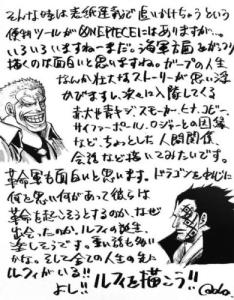 そんな時は表紙連載で追いかけちゃうという
便利ツールが《ONE PIECE》にはありますが…。
いろいろいますねーまだ。海軍室をがっつり
描くのは面白いと思いますね。ガープの人生
なんか壮大なストーリーが思い浮
かびますし、次々に入隊してくる
赤犬や青キジ、スモーカー、ヒナ、コビー、
サイファーポール、ロジャーとの因縁
など、ちょっとした人間関係、
会話など描いてみたいです。
革命軍も面白いと思います。ドラゴンをねじに
何を思い何があって彼らは
革命を起こそうとするのか、なぜ
出会ったのか、ルフィの誕生、
楽しそうです。重い話も多い
かな。そして全ての人の先に
ルフィがいる!!
よし!! ルフィを描こう!!